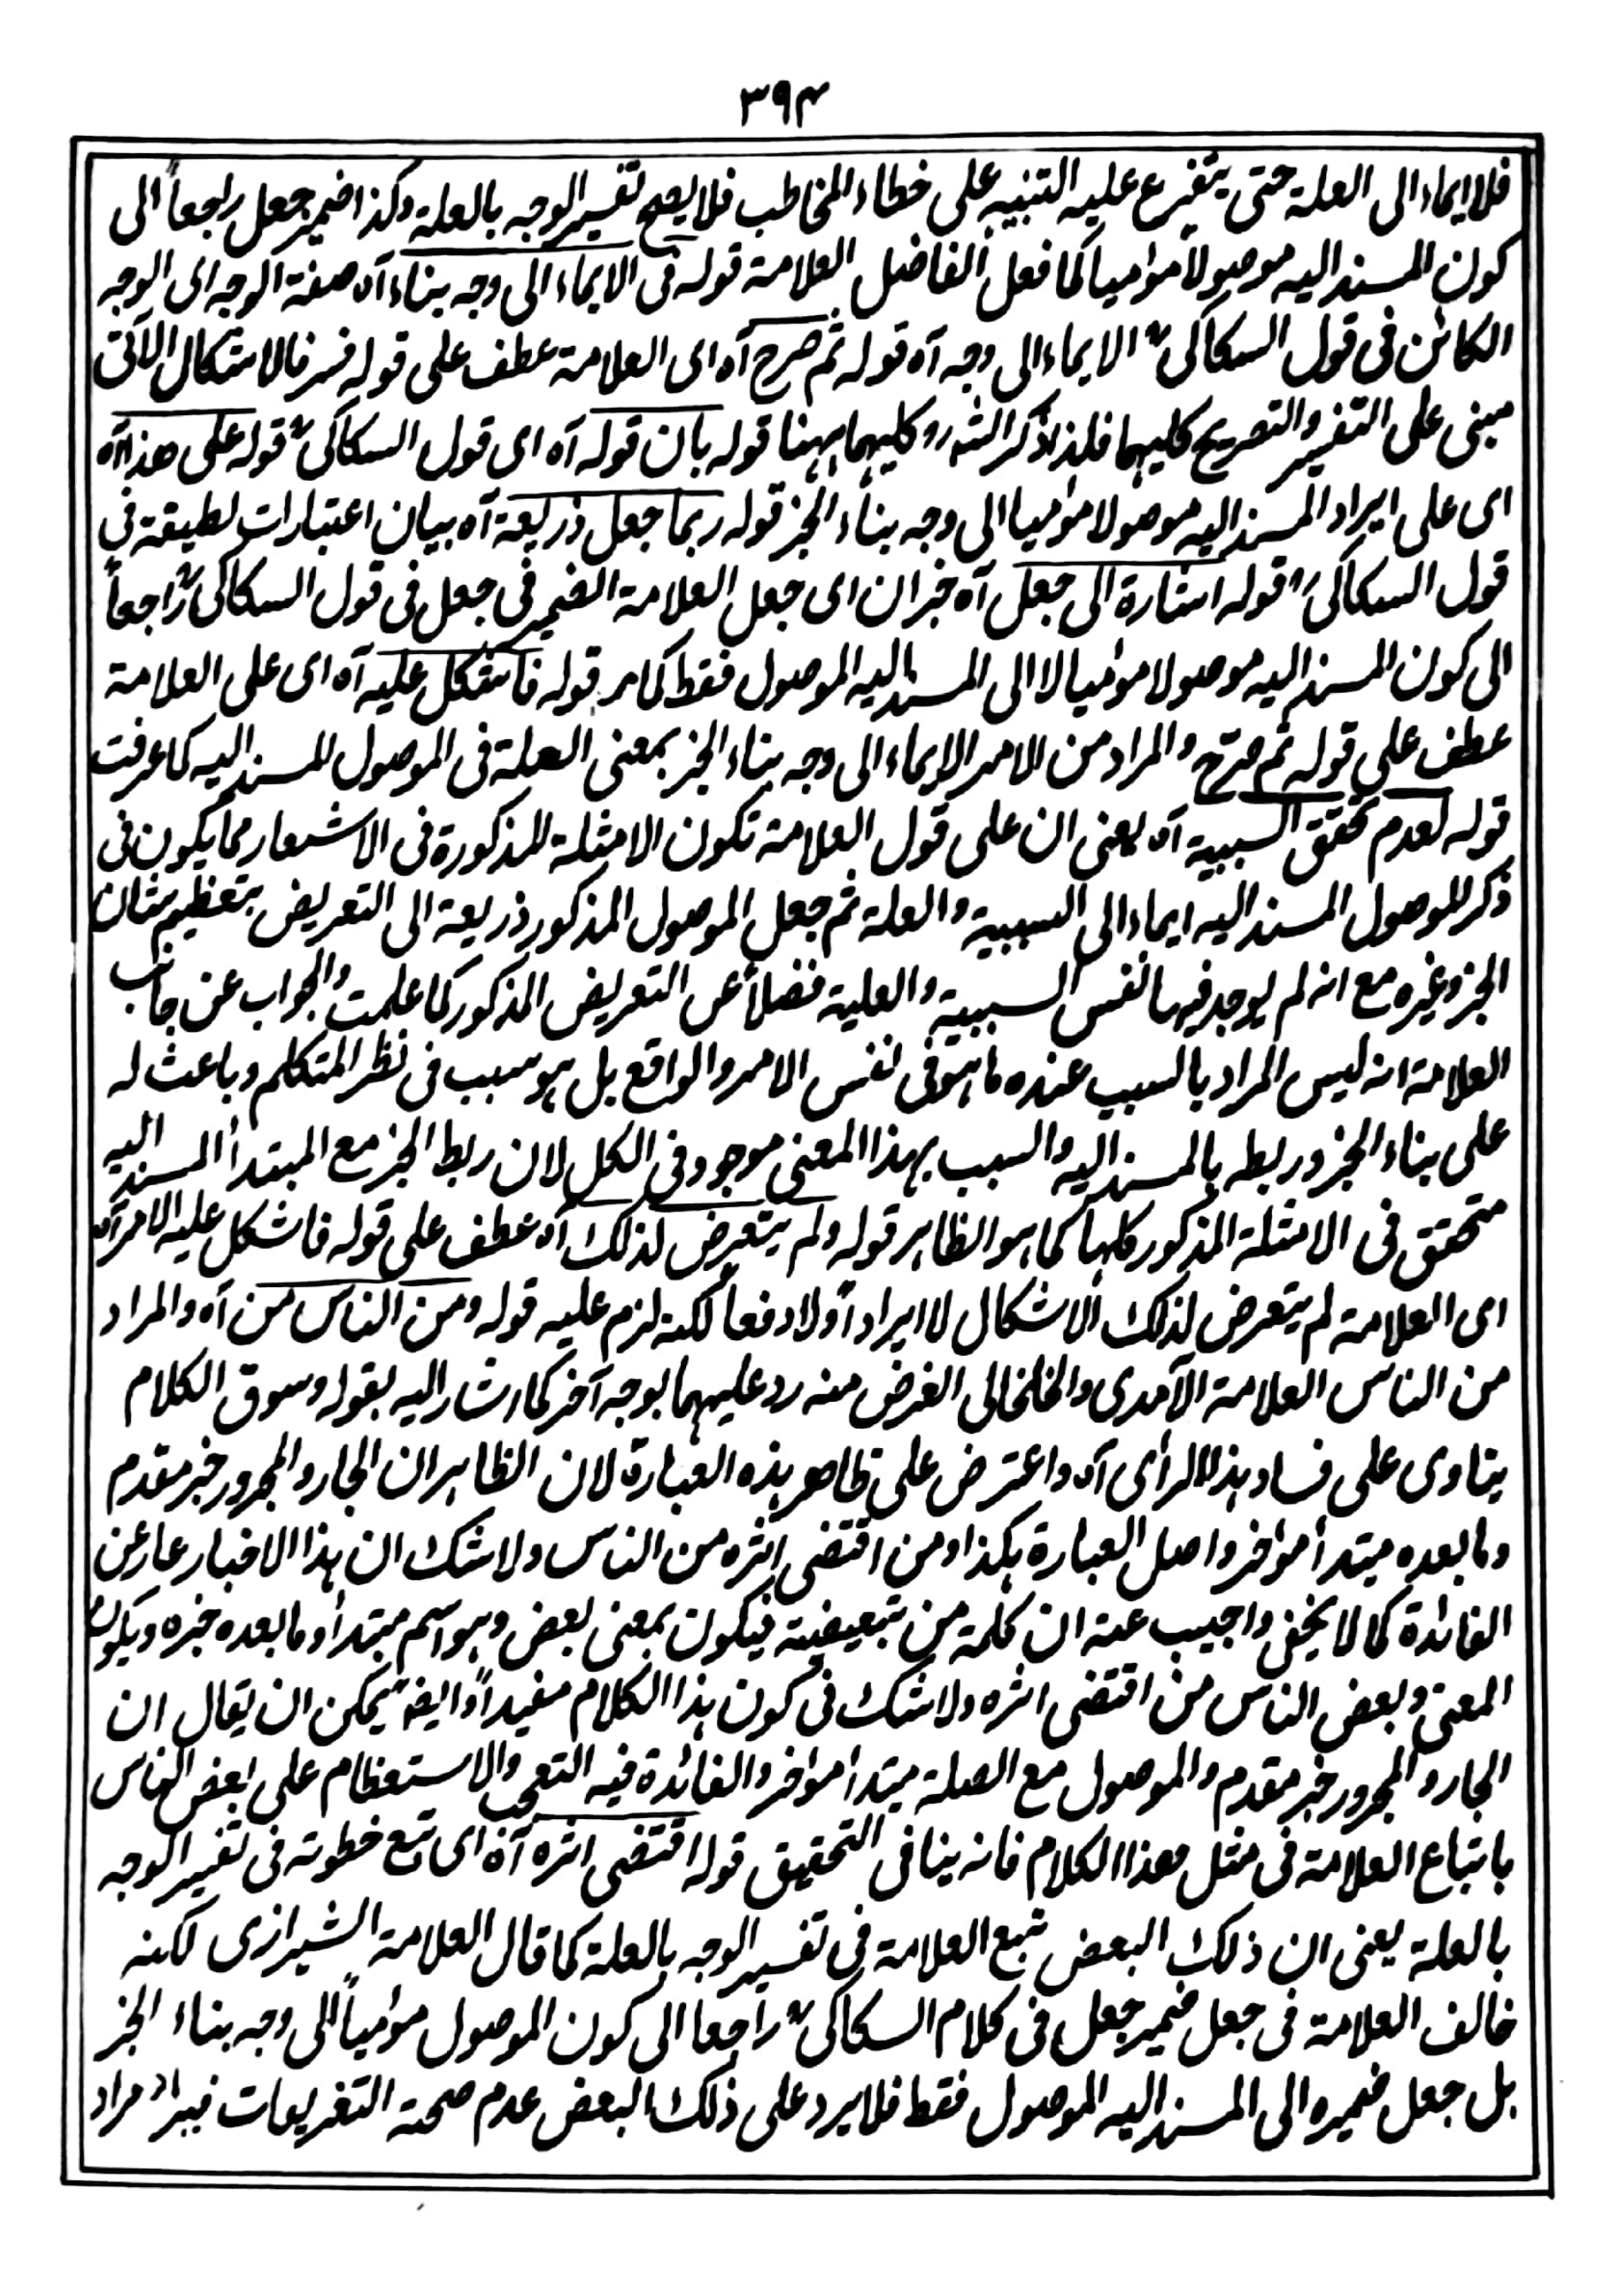 ٣٩٤
فلا ايماء الى العلة حتى يتفرع عليه التنبيه على خطاء المخاطب فلا يصح تفسير الوجه بالعلة وكذا ضمير جعل راجعاً الى
كون المسند اليه موصولاً موميا كما فعل الفاضل العلامة قوله فى الايماء الى وجه بناء آه صفة الوجه اى الوجه
الكائن فى قول السكاكى الايماء الى وجه آه قوله ثم صرح آه اى العلامة عطف على قوله فسر فالاشكال الآتى
مبنى على التفسير والتصريح كليهما فلذا ذكر الشہ رو كليهما ہہنا قوله بان قوله آه اى قول السكاكى قوله على هذا آه
اى على ايراد المسند اليه موصولا موميا الى وجه بناء الخبر قوله ربما جعل ذريعة آه بيان اعتبارات لطيفة فى
قول السكاكى قوله اشارة الى جعل آه خبر ان اى جعل العلامة الضمير فى جعل فى قول السكاكى راجعاً
الى كون المسند اليه موصولا موميا لا الى المسند اليه الموصول فقط كما مر قوله فاشكل عليه آه اى على العلامة
عطف على قوله ثم صرح والمراد من الامر الايماء الى وجه بناء الخبر بمعنى العلة فى الموصول المسند اليه كما عرفت
قوله لعدم تحقق السببية آه يعنى ان على قول العلامة تكون الامثلة المذكورة فى الاشعار مما يكون فى
ذكر الموصول المسند اليه ايماء الى السببية والعلة ثم جعل الموصول المذكور ذريعة الى التعريض بتعظيم شان
الخبر وغيره مع انه لم يوجد فيها نفس السببية والعلية فضلاً عن التعريض المذكور كما علمت والجواب عن جانب
العلامة انه ليس المراد بالسبب عنده ما ہو فى نفس الامر والواقع بل ہو سبب فى نظر المتكلم وباعث له
على بناء الخبر وربطه بالمسند اليه والسبب بہذا المعنى موجود فى الكل لان ربط الخبر مع المبتدأ المسند اليه
متحقق فى الامثلة المذكور كلہا كما ہو الظاہر قوله ولم يتعرض لذلك آه عطف على قوله فاشكل عليه الامر آه
اى العلامة لم يتعرض لذلك الاشكال لا ايراداً ولا دفعاً لكنه لزم عليه قوله ومن الناس من آه والمراد
من الناس العلامة الآمدى والخلخالى الغرض منه رد عليہما بوجه آخر كما اشار اليه بقوله وسوق الكلام
ينادى على فساد ہذا الرأى آه واعترض على ظاهر ہذه العبارة لان الظاہر ان الجار والمجرور خبر مقدم
وما بعده مبتدأ موخر واصل العبارة ہكذا ومن اقتضى اثره من الناس ولا شك ان ہذا الاخبار عار عن
الفائدة كما لا يخفى واجيب عنه ان كلمة من تبعيضية فيكون بمعنى بعض وہو اسم مبتدأ وما بعده خبره ويكون
المعنى وبعض الناس من اقتضى اثره ولا شك فى كون ہذا الكلام مفيداً وايضا يمكن ان يقال ان
الجار والمجرور خبر مقدم والموصول مع الصلة مبتدأ موخر والفائدة فيه التعجب والاستعظام على بعض الناس
باتباع العلامة فى مثل هذا الكلام فانه ينافى التحقيق قوله اقتضى اثره آه اى تتبع خطوته فى تفسير الوجه
بالعلة يعنى ان ذلك البعض تبع العلامة فى تفسير الوجه بالعلة كما قال العلامة الشيرازى لكنه
خالف العلامة فى جعل ضمير جعل فى كلام السكاكى راجعا الى كون الموصول موميأ الى وجه بناء الخبر
بل جعل ضميره الى المسند اليه الموصول فقط فلا يرد على ذلك البعض عدم صحة التفريعات مراد